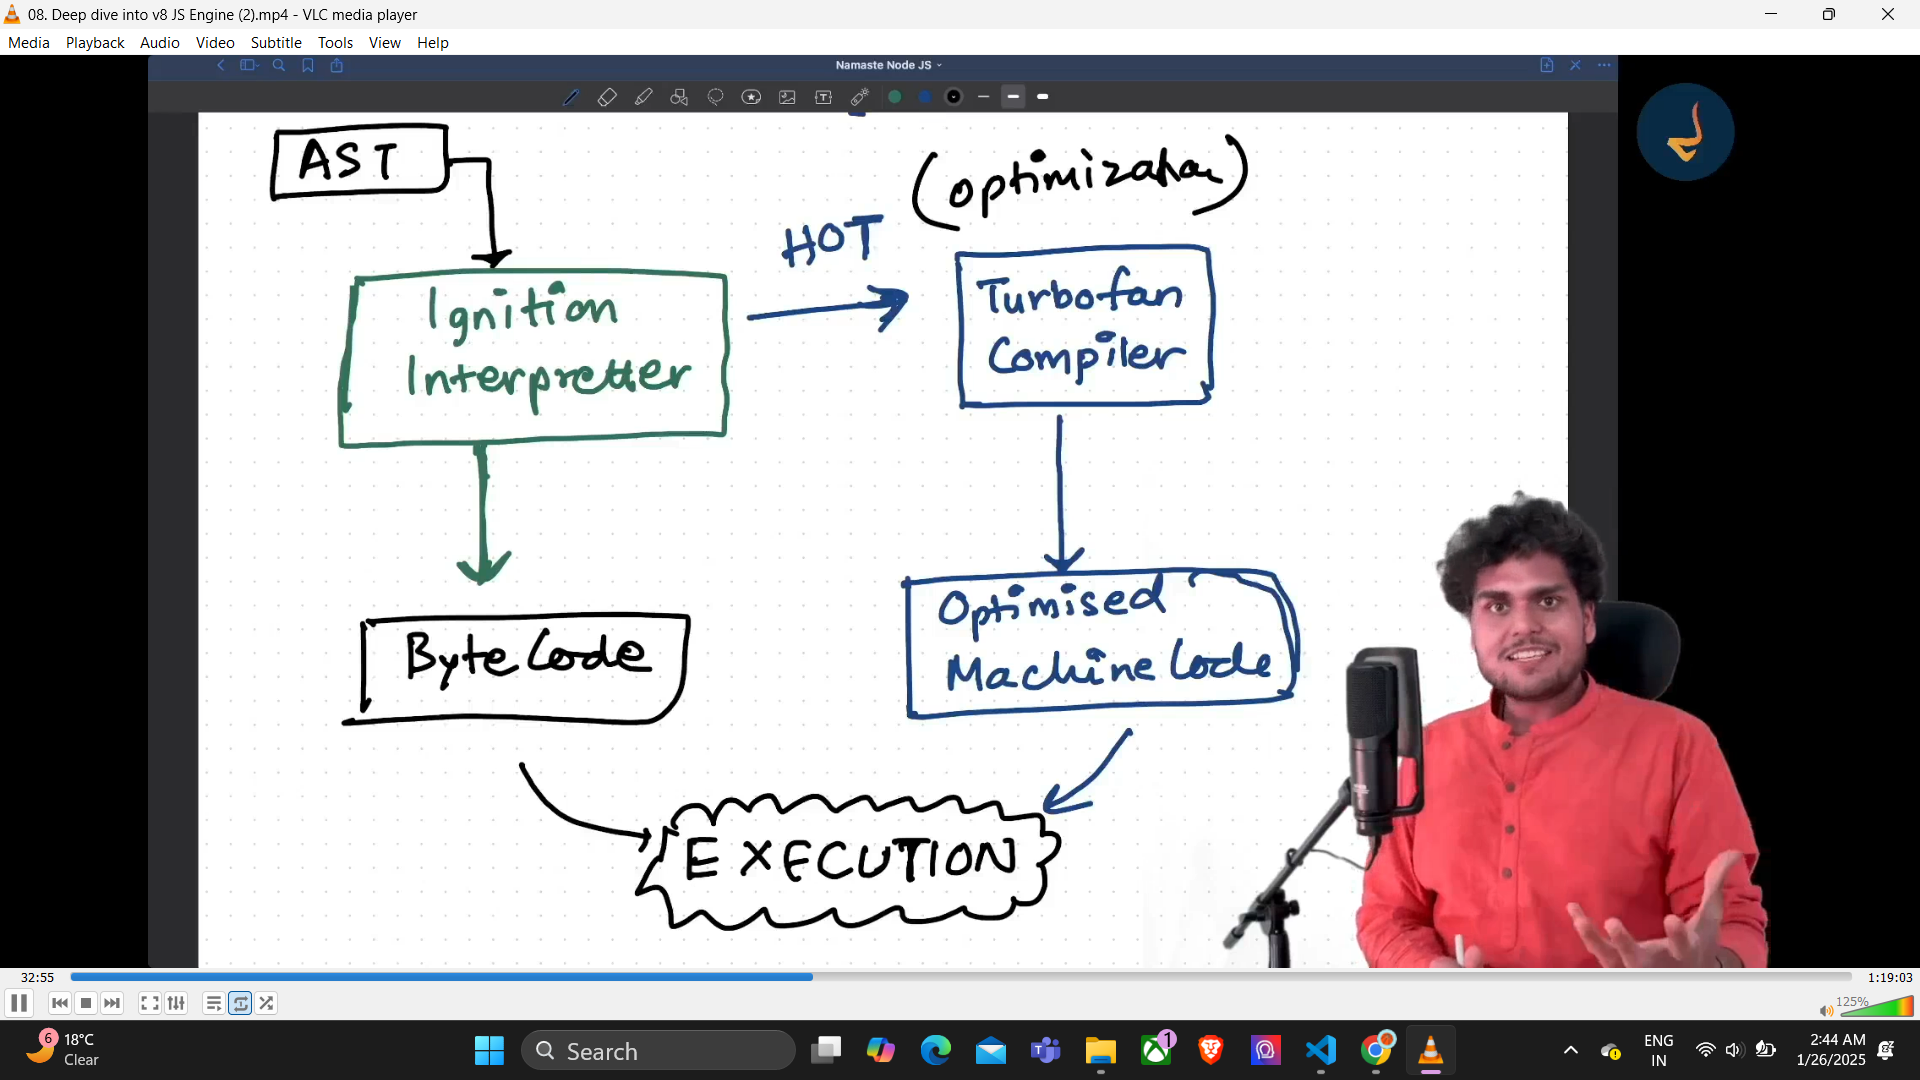 08. Deep dive into v8 JS Engine (2).mp4 - VLC media player
Media Playback Audio Video Subtitle Tools View Help
Namaste Node JS
AST
(Optimization)
HOT
Ignition
Interpretter
Turbofan
Compiler
Byte Code
Optimised
Machine Code
EXECUTION
32:55
1:19:03
125%
6
18°C
Clear
Search
1
ENG
IN
2:44 AM
1/26/2025